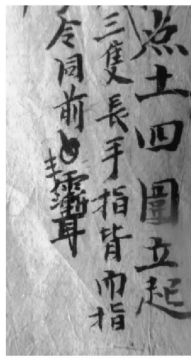 点土四圍立起
三隻長手指皆而指
令同前